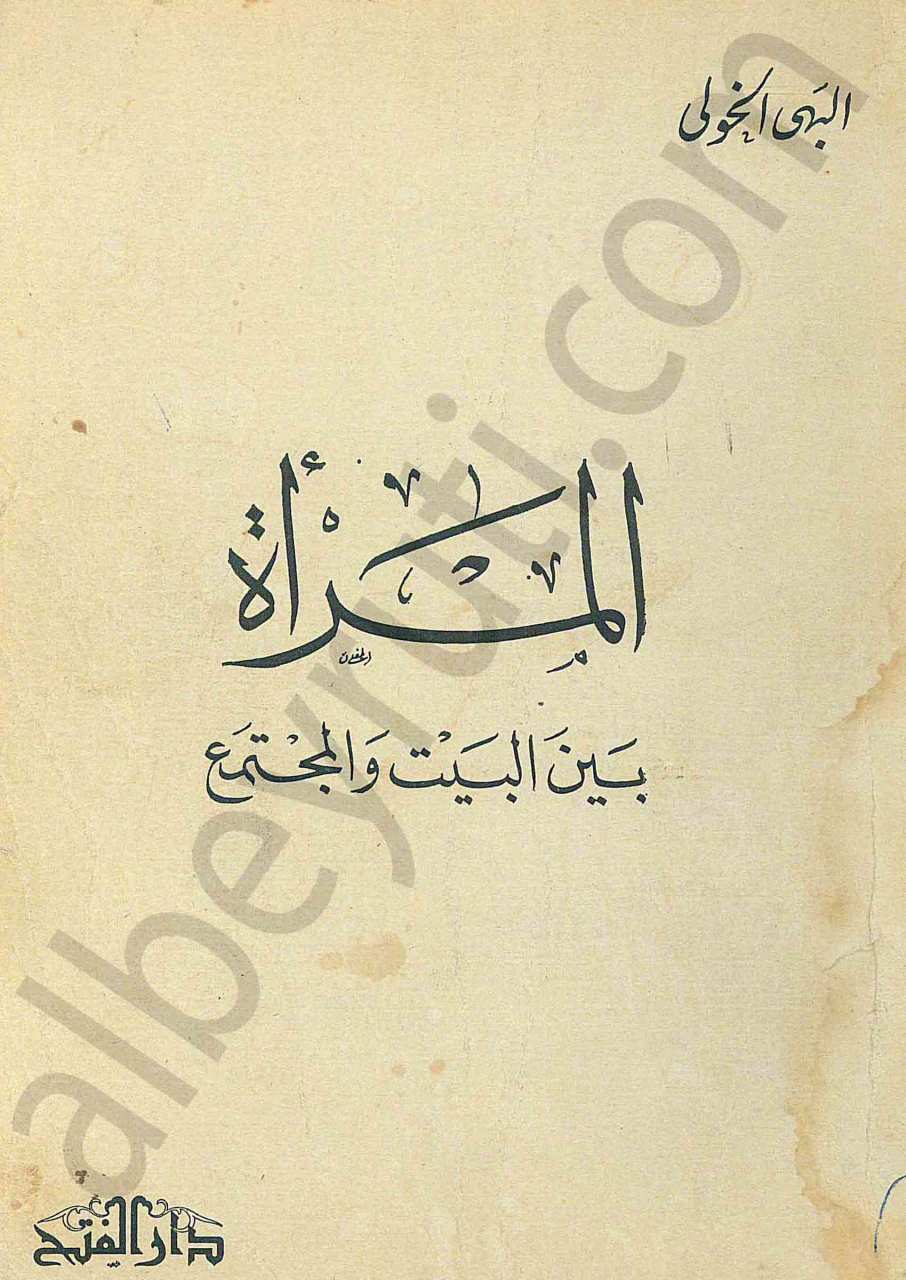 البهى الخولى
المرأة
بَينَ البَيْت وَالمجْتمَع
دار الفتح
albeyruti.com